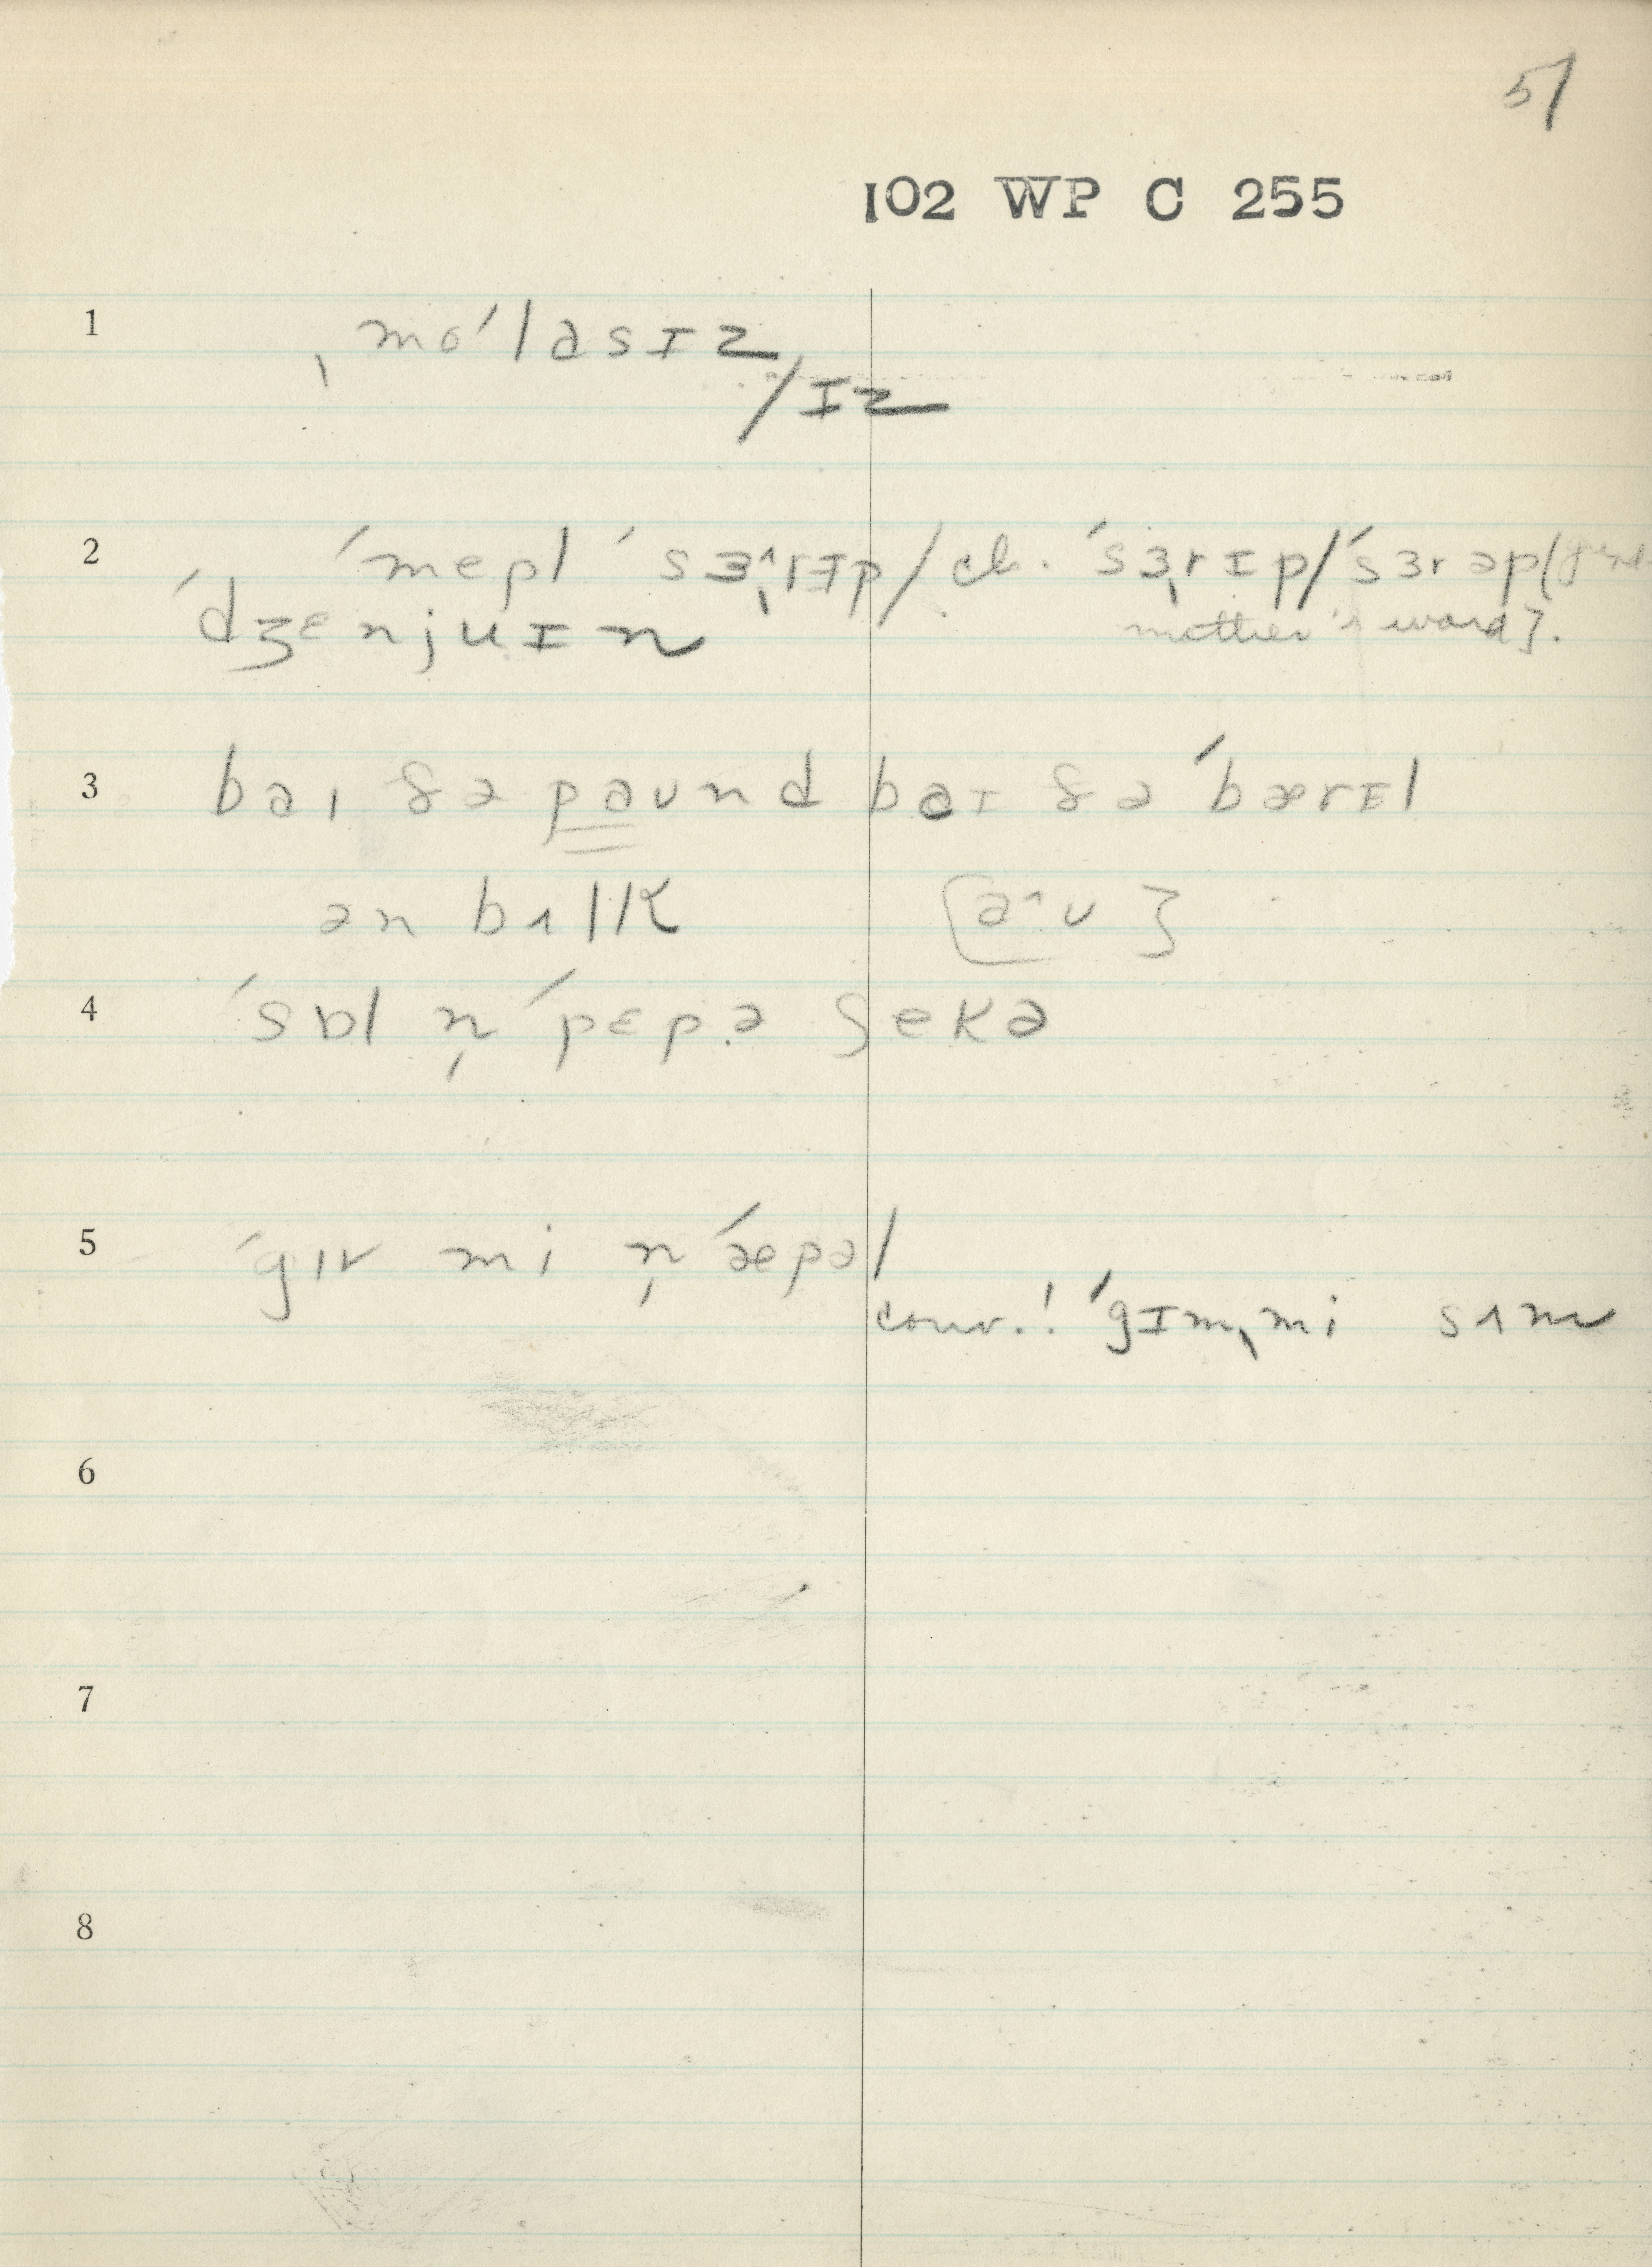 51
102 WP C 255
1 ˌmoˈlasɪz
/ɪz
2 ˈmepl ˈsɜ˄ˌrɪp/ch. ˈsɜˌrɪp/ˈsɜrəp[
ˈdʒɛnjuɪn mother's word].
3 baɪ ðə paʊnd baɪ ðə ˈbærɪl
ən bʌlk [a˄ʊ]
4 ˈsɒl n̩ ˈpɛpə ʃekə
5 ˈgɪv mi n̩ ˈæpəl
conv.! ˈgɪmˌmi sʌm
6
7
8